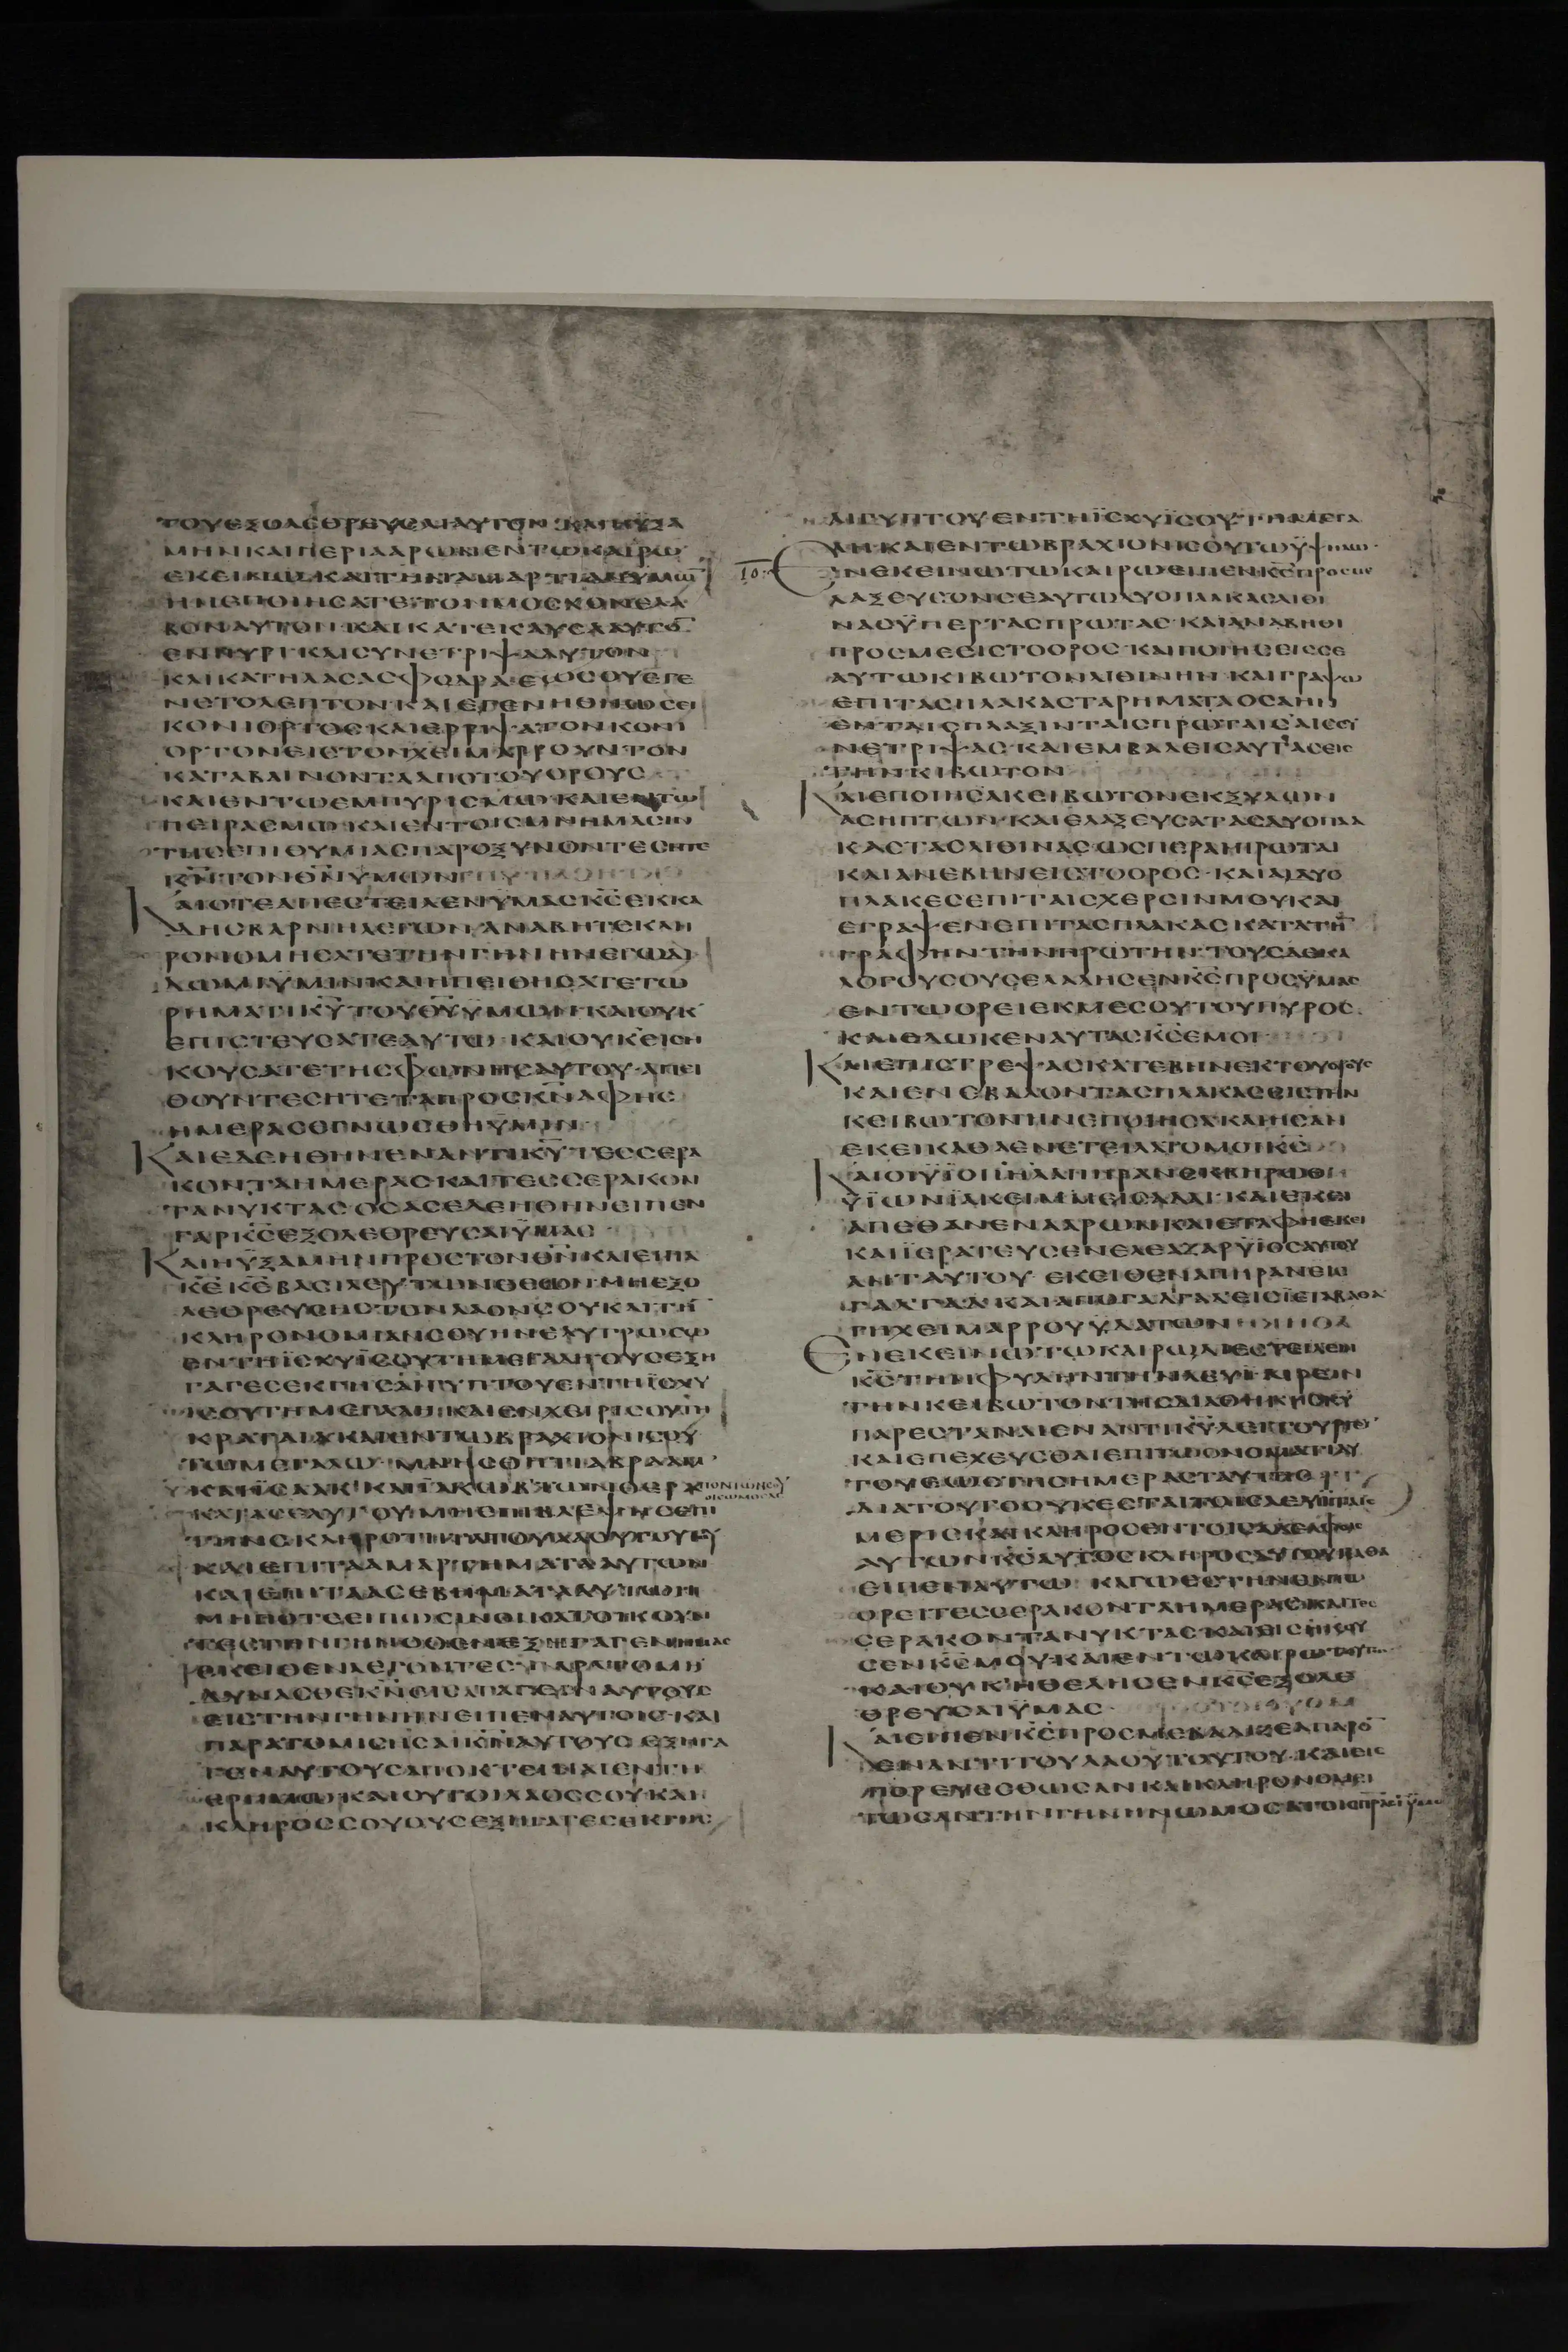 ΤΟΥΕΞΟΛΕΘΡΕΥCΑΙΑΥΤΟΝ ΚΑΙΗΥΞΑ
ΜΗΝΚΑΙΠΕΡΙΑΑΡΩΝΕΝΤΩΚΑΙΡΩ
ΕΚΕΙΝΩ ΚΑΙΤΗΝΑΜΑΡΤΙΑΝΥΜΩ̅
ΗΝΕΠΟΙΗCΑΤΕ ΤΟΝΜΟCΧΟΝΕΛΑ
ΒΟΝΑΥΤΟΝ ΚΑΙΚΑΤΕΚΑΥCΑΑΥΤΟ̅
ΕΝΠΥΡΙ ΚΑΙCΥΝΕΤΡΙΨΑΑΥΤΟΝ
ΚΑΙΚΑΤΗΛΑCΑCΦΟΔΡΑ ΕΩCΟΥΕΓΕ
ΝΕΤΟΛΕΠΤΟΝ ΚΑΙΕΓΕΝΗΘΗΩCΕΙ
ΚΟΝΙΟΡΤΟC ΚΑΙΕΡΡΙΨΑΤΟΝΚΟΝΙ
ΟΡΤΟΝΕΙCΤΟΝΧΕΙΜΑΡΡΟΥΝΤΟΝ
ΚΑΤΑΒΑΙΝΟΝΤΑΑΠΟΤΟΥΟΡΟΥC
ΚΑΙΕΝΤΩΕΜΠΥΡΙCΜΩ ΚΑΙΕΝΤΩ
ΠΕΙΡΑCΜΩ ΚΑΙΕΝΤΟΙCΜΝΗΜΑCΙΝ
ΤΗCΕΠΙΘΥΜΙΑCΠΑΡΟΞΥΝΟΝΤΕCΗΤΕ
Κ̅Ν̅ΤΟΝΘ̅Ν̅ΥΜΩΝ
ΚΑΙΟΤΕΑΠΕCΤΕΙΛΕΝΫΜΑCΚ̅C̅ΕΚΚΑ
ΔΗCΒΑΡΝΗΛΕΓΩΝ ΑΝΑΒΗΤΕΚΛΗ
ΡΟΝΟΜΗCΑΤΕΤΗΝΓΗΝΗΝΕΓΩΔΙ
ΔΩΜΙΫΜΙΝΚΑΙΗΠΕΙΘΗCΑΤΕΤΩ
ΡΗΜΑΤΙΚ̅Υ̅ΤΟΥΘ̅Υ̅ΫΜΩΝ ΚΑΙΟΥΚ
ΕΠΙCΤΕΥCΑΤΕΑΥΤΩ ΚΑΙΟΥΚΕΙCΗ
ΚΟΥCΑΤΕΤΗCΦΩΝΗCΑΥΤΟΥ ΑΠΕΙ
ΘΟΥΝΤΕCΗΤΕΤΑΠΡΟCΚ̅Ν̅ΑΦΗC
ΗΜΕΡΑCΕΓΝΩCΘΗΫΜΙΝ
ΚΑΙΕΔΕΗΘΗΝΕΝΑΝΤΙΚ̅Υ̅ΤΕCCΕΡΑ
ΚΟΝΤΑΗΜΕΡΑCΚΑΙΤΕCCΕΡΑΚΟΝ
ΤΑΝΥΚΤΑCΟCΑCΕΔΕΗΘΗΝΕΙΠΕΝ
ΓΑΡΚ̅C̅ΕΞΟΛΕΘΡΕΥCΑΙΫΜΑC
ΚΑΙΗΫΞΑΜΗΝΠΡΟCΤΟΝΘ̅Ν̅ΚΑΙΕΙΠΑ
Κ̅Ε̅Κ̅Ε̅ΒΑCΙΛΕΥΤΩΝΘΕΩΝ ΜΗΕΞΟ
ΛΕΘΡΕΥCΗCΤΟΝΛΑΟΝCΟΥΚΑΙΤΗ̅
ΚΛΗΡΟΝΟΜΙΑΝCΟΥΗΝΕΛΥΤΡΩCΩ
ΕΝΤΗΪCΧΥΪCΟΥΤΗΜΕΓΑΛΗ ΟΥCΕΞΗ
ΓΑΓΕCΕΚΓΗCΑΙΓΥΠΤΟΥΕΝΤΗΪCΧΥ
ΪCΟΥΤΗΜΕΓΑΛΗ ΚΑΙΕΝΧΕΙΡΙCΟΥΤΗ
ΚΡΑΤΑΙΑΚΑΙΕΝΤΩΒΡΑΧΙΟΝΙCΟΥ
ΤΩΜΕΓΑΛΩ ΜΝΗCΘΗΤΙΑΒΡΑΑΜ
ΚΑΙΪCΑΑΚ ΚΑΙΪΑΚΩΒΤΩΝΘΕΡΑΠΟΝΤΩΝCΟΥ
ΟΙCΩΜΟCΑC
ΚΑΤΑCΕΑΥΤΟΥ ΜΗΕΠΙΒΛΕΨΗCΕΠΙ
ΤΗΝCΚΛΗΡΟΤΗΤΑΤΟΥΛΑΟΥΤΟΥΤΟΥ
ΚΑΙΕΠΙΤΑΑΜΑΡΤΗΜΑΤΑΑΥΤΩΝ
ΚΑΙΕΠΙΤΑΑCΕΒΗΜΑΤΑΑΥΤΩΝ
ΜΗΠΟΤΕΕΙΠΩCΙΝΟΙΚΑΤΟΙΚΟΥΝ
ΤΕCΤΗΝΓΗΝΟΘΕΝΕΞΗΓΑΓΕCΗΜΑC
ΕΚΕΙΘΕΝΛΕΓΟΝΤΕC ΠΑΡΑΤΟΜΗ
ΔΥΝΑCΘΑΙΚ̅Ν̅ΕΙCΑΓΑΓΕΙΝΑΥΤΟΥC
ΕΙCΤΗΝΓΗΝΗΝΕΙΠΕΝΑΥΤΟΙC ΚΑΙ
ΠΑΡΑΤΟΜΙCΗCΑΙΚ̅Ν̅ΑΥΤΟΥC ΕΞΗΓΑ
ΓΕΝΑΥΤΟΥCΑΠΟΚΤΕΙΝΑΙΕΝΤΗ
ΕΡΗΜΩ ΚΑΙΟΥΤΟΙΛΑΟCCΟΥΚΑΙ
ΚΛΗΡΟCCΟΥΟΥCΕΞΗΓΑΓΕCΕΚΓΗC
ΑΙΓΥΠΤΟΥΕΝΤΗΪCΧΥΪCΟΥΤΗΜΕΓΑ
ΛΗ ΚΑΙΕΝΤΩΒΡΑΧΙΟΝΙCΟΥΤΩΫΨΗΛΩ
ΕΝΕΚΕΙΝΩΤΩΚΑΙΡΩΕΙΠΕΝΚ̅C̅ΠΡΟCΜΕ
ΛΑΞΕΥCΟΝCΕΑΥΤΩΔΥΟΠΛΑΚΑCΛΙΘΙ
ΝΑCΩCΠΕΡΤΑCΠΡΩΤΑC ΚΑΙΑΝΑΒΗΘΙ
ΠΡΟCΜΕΕΙCΤΟΟΡΟC ΚΑΙΠΟΙΗCΕΙCCΕ
ΑΥΤΩΚΙΒΩΤΟΝΛΙΘΙΝΗΝ ΚΑΙΓΡΑΨΩ
ΕΠΙΤΑCΠΛΑΚΑCΤΑΡΗΜΑΤΑΟCΑΗΝ
ΕΝΤΑΙCΠΛΑΞΙΝΤΑΙCΠΡΩΤΑΙCΑΙCCΥ
ΝΕΤΡΙΨΑC ΚΑΙΕΜΒΑΛΕΙCΑΥΤΑCΕΙC
ΤΗΝΚΙΒΩΤΟΝ
ΚΑΙΕΠΟΙΗCΑΚΕΙΒΩΤΟΝΕΚΞΥΛΩΝ
ΑCΗΠΤΩΝ ΚΑΙΕΛΑΞΕΥCΑΤΑCΔΥΟΠΛΑ
ΚΑCΤΑCΛΙΘΙΝΑCΩCΠΕΡΑΙΠΡΩΤΑΙ
ΚΑΙΑΝΕΒΗΝΕΙCΤΟΟΡΟC ΚΑΙΑΙΔΥΟ
ΠΛΑΚΕCΕΠΙΤΑΙCΧΕΡCΙΝΜΟΥΚΑΙ
ΕΓΡΑΨΕΝΕΠΙΤΑCΠΛΑΚΑCΚΑΤΑΤΗ̅
ΓΡΑΦΗΝΤΗΝΠΡΩΤΗΝ ΤΟΥCΔΕΚΑ
ΛΟΓΟΥCΟΥCΕΛΑΛΗCΕΝΚ̅C̅ΠΡΟCΫΜΑC
ΕΝΤΩΟΡΕΙΕΚΜΕCΟΥΤΟΥΠΥΡΟC
ΚΑΙΕΔΩΚΕΝΑΥΤΑCΚ̅C̅ΕΜΟΙ
ΚΑΙΕΠΙCΤΡΕΨΑCΚΑΤΕΒΗΝΕΚΤΟΥΟΡΟΥC
ΚΑΙΕΝΕΒΑΛΟΝΤΑCΠΛΑΚΑCΕΙCΤΗΝ
ΚΕΙΒΩΤΟΝΗΝΕΠΟΙΗCΑΚΑΙΗCΑΝ
ΕΚΕΙΚΑΘΑΕΝΕΤΕΙΛΑΤΟΜΟΙΚ̅C̅
ΚΑΙΟΙΫΙΟΙΙ̅Η̅Λ̅ΑΠΗΡΑΝΕΚΒΗΡΩΘ
ΫΙΩΝΪΑΚΕΙΜ ΚΑΙΕΚΕΙ
ΑΠΕΘΑΝΕΝΑΑΡΩΝΚΑΙΕΤΑΦΗΕΚΕΙ
ΚΑΙΪΕΡΑΤΕΥCΕΝΕΛΕΑΖΑΡΫΙΟCΑΥΤΟΥ
ΑΝΤΑΥΤΟΥ ΕΚΕΙΘΕΝΑΠΗΡΑΝΕΙC
ΓΑΔΓΑΔ ΚΑΙΑΠΟΓΑΔΓΑΔΕΙC
ΓΗΧΕΙΜΑΡΡΟΥΫΔΑΤΩΝ
ΕΝΕΚΕΙΝΩΤΩΚΑΙΡΩΔΙΕCΤΕΙΛΕΝ
Κ̅C̅ΤΗΝΦΥΛΗΝΤΗΝΛΕΥΙ ΑΙΡΕΙΝ
ΤΗΝΚΕΙΒΩΤΟΝΤΗCΔΙΑΘΗΚΗCΚ̅Υ̅
ΠΑΡΕCΤΑΝΑΙΕΝΑΝΤΙΚ̅Υ̅ΛΕΙΤΟΥΡΓΕΙ
ΚΑΙΕΠΕΥΧΕCΘΑΙΕΠΙΤΩΟΝΟΜΑΤΙΑΥ
ΤΟΥΕΩCΤΗCΗΜΕΡΑCΤΑΥΤΗC
ΔΙΑΤΟΥΤΟΟΥΚΕCΤΑΙΤΟΙCΛΕΥΙΤΑΙC
ΜΕΡΙCΚΑΙΚΛΗΡΟCΕΝΤΟΙCΑΔΕΛΦΟΙC
ΑΥΤΩΝΚ̅C̅ΑΥΤΟCΚΛΗΡΟCΑΥΤΟΥΚΑΘΑ
ΕΙΠΕΝΑΥΤΩ ΚΑΓΩΕCΤΗΝΕΝΤΩ
ΟΡΕΙΤΕCCΕΡΑΚΟΝΤΑΗΜΕΡΑCΚΑΙΤΕC
CΕΡΑΚΟΝΤΑΝΥΚΤΑCΚΑΙΕΙCΗΚΟΥ
CΕΝΚ̅C̅ΕΜΟΥΚΑΙΕΝΤΩΚΑΙΡΩΤΟΥΤΩ
ΚΑΙΟΥΚΗΘΕΛΗCΕΝΚ̅C̅ΕΞΟΛΕ
ΘΡΕΥCΑΙΫΜΑC
ΚΑΙΕΙΠΕΝΚ̅C̅ΠΡΟCΜΕΒΑΔΙΖΕΑΠΑΡΟ̅
ΕΝΑΝΤΙΤΟΥΛΑΟΥΤΟΥΤΟΥ ΚΑΙΕΙC
ΠΟΡΕΥΕCΘΩCΑΝΚΑΙΚΛΗΡΟΝΟΜΕΙ
ΤΩCΑΝΤΗΝΓΗΝΗΝΩΜΟCΑΤΟΙCΠΑΤΡΑCΙΝΑΥΤΩ